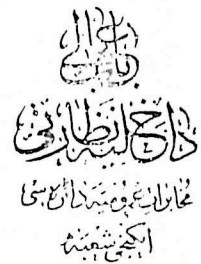 باب عالی
داخلیه نظارتی
مخابرات عمومیه دائره سی
ایكنجی شعبه